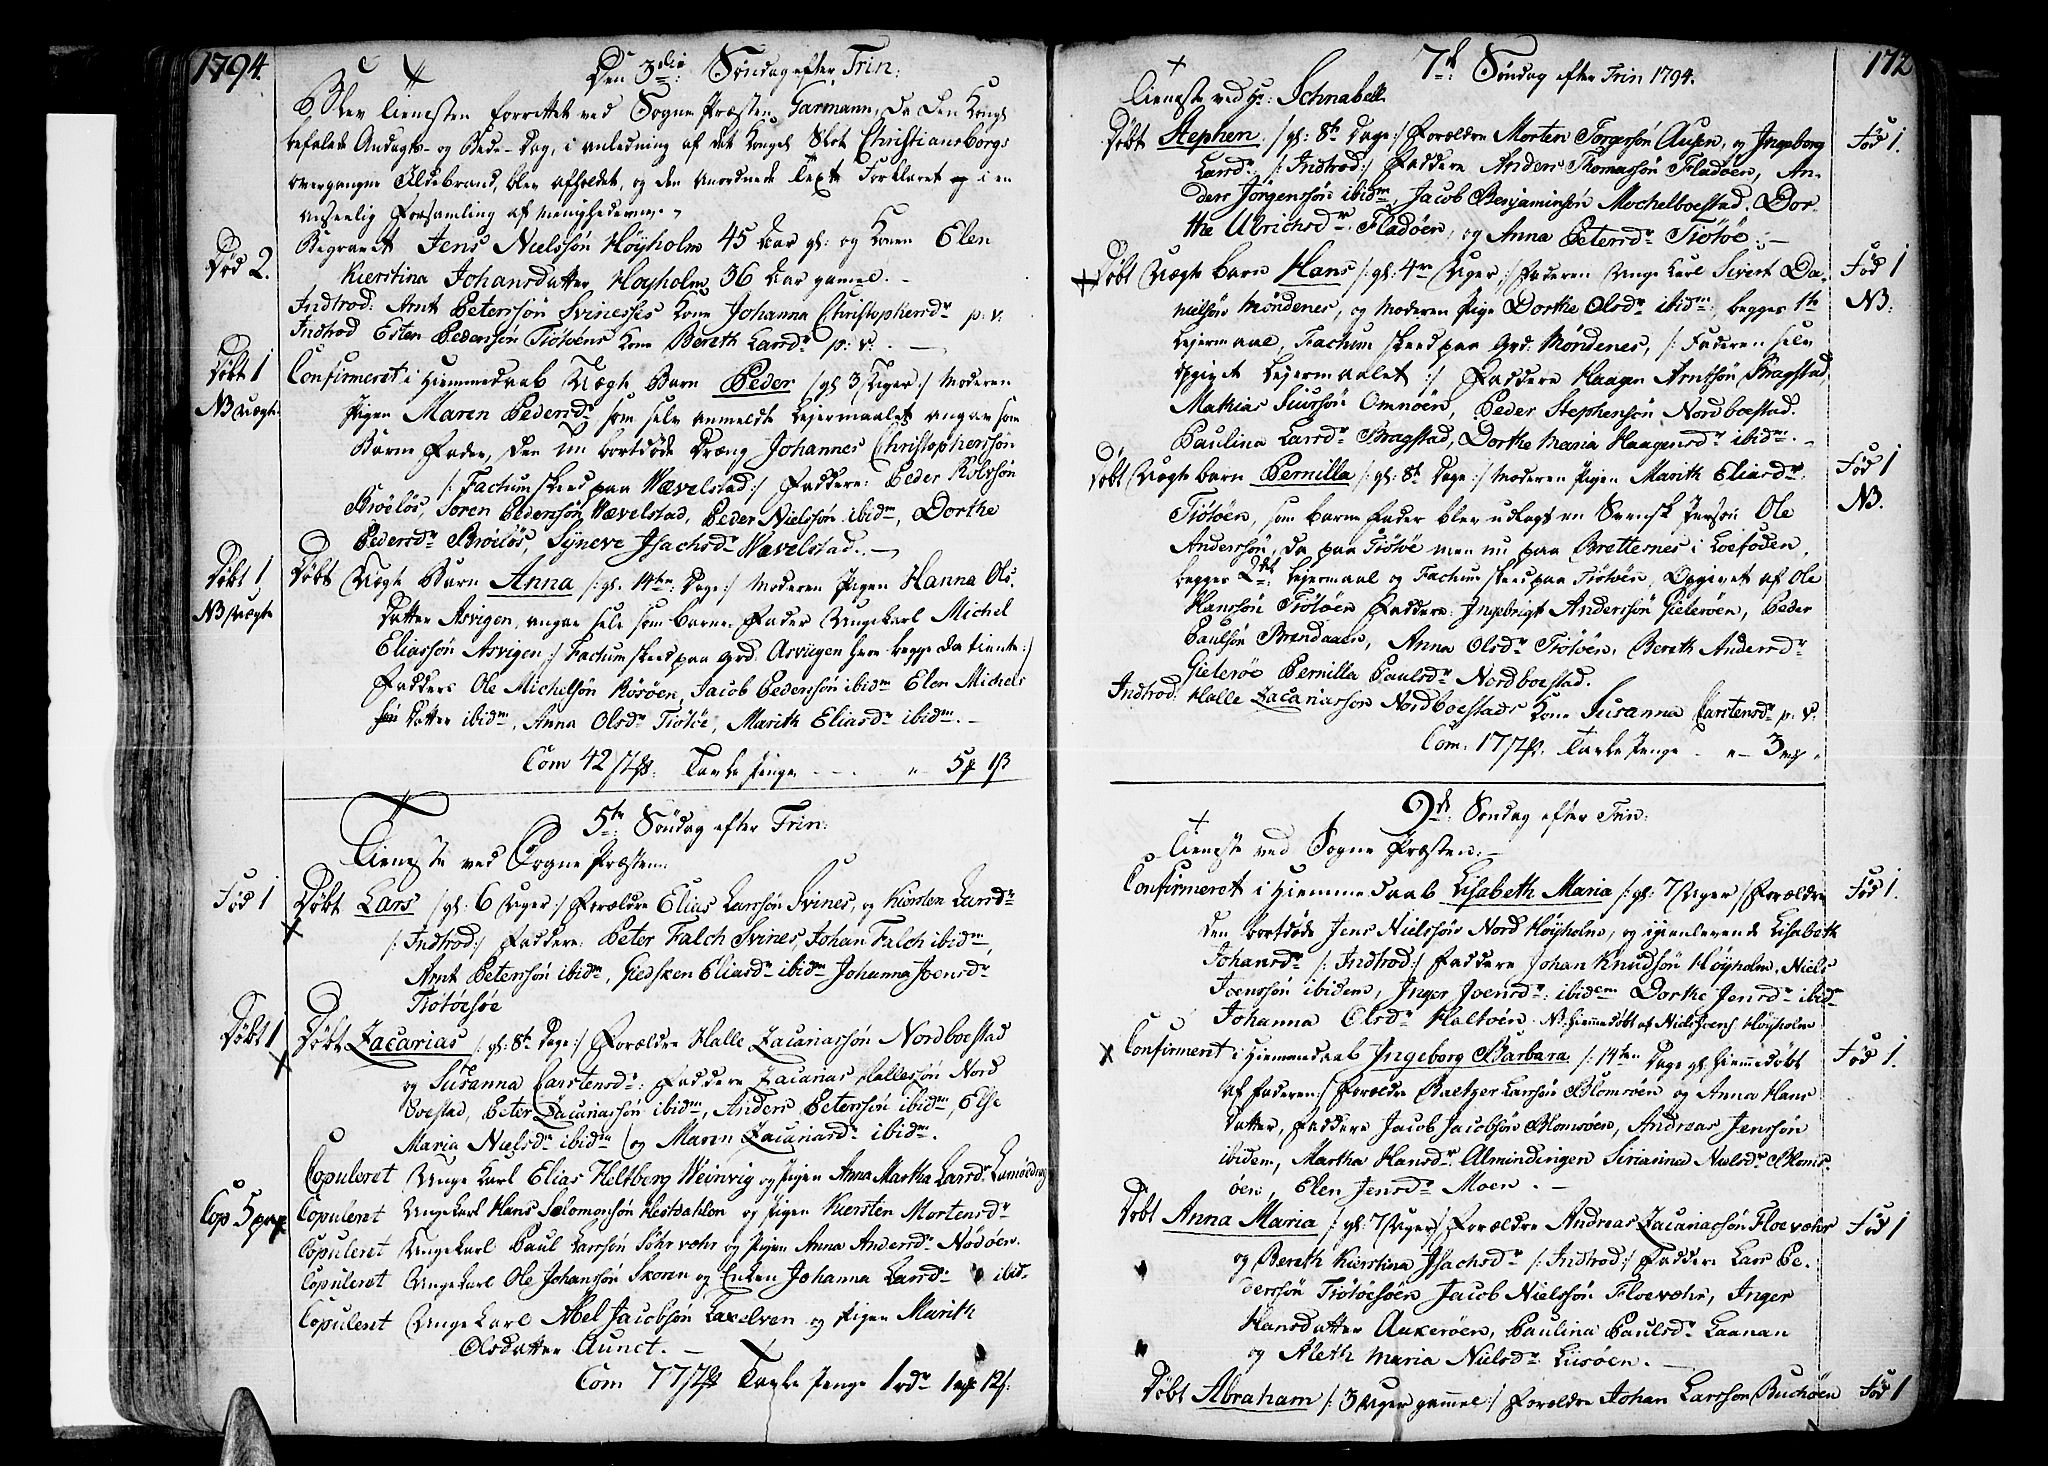 1794.
Den 3die Søndag efter Trin:
Blev Tienesten forrettet ved Sogne Præsten Garmann, da den Kongl.
befalede Andagts- og Bede-Dag, i anledning af det Kongel. Slot Christiansborgs
overgangne Ildebrand, blev afholdet, og den anordnede Text Forklaret i en
anseelig Forsamling af menighederne.
Død 2.
Begravet Jens Nielssøn Høyholm 45 Aar gl: og Konen Elen
Kierstina Johansdatter Høyholm 36 Aar gammel.
Indtrod: Arnt Peterssøn Svinesses Kone Johanna Christophersdr p: v:
Indtrod Esten Pederssøn Tiøtøens Kone Bereth Larsdr p: v:
Døbt 1
NB uægte
Confirmeret i Hiemmedaab Uægte Barn Peder /: gl 3 Uger :/ Moderen
Pigen Maren Pedersdr som selv anmeldte Lejermaalet angav som
Barne Fader, den nu bortdøde Dræng Johannes Christopherssøn
/: Factum skeed paa Wævelstad :/ Faddere: Peder Rolvsøn
Broeløs, Søren Pederssøn Wævelstad, Peder Nielssøn ibidm, Dorthe
Pedersdr Broeløs, Syneve Isachsdr Wævelstad.
Døbt 1
NB uægte
Døbt Uægte Barn Anna /: gl. 14ten Dage :/ Moderen Pigen Hanna Ols-
datter Asvigen, angav selv som Barne Fader Ungekarl Michel
Eliassøn Asvigen /: Factum skeed paa Grd: Asviigen hvor begge da tiente :/
Faddere Ole Michelsøn Rosøen, Jacob Pederssøn ibidm Elen Michels
datter ibidm, Anna Olsdr Tiøtøe, Marith Eliasdr ibidm.
Com 42 Tavle Penge - - - " 5 1ß
5te: Søndag efter Trin:
Tieneste ved Sogne Præsten.
Fød 1
Døbt Lars /: gl: 6 Uger :/ Forældre Elias Larssøn Svines, og Kiersten Larsdr
/: Indtrod :/ Faddere: Peter Falch Svines, Johan Falch ibidm
Arnt Peterssøn ibidm, Giedsken Eliasdr ibidm Johanna Joensdr
Tiøtøesøe
Døbt 1
Døbt Zacarias /: gl: 8te Dage :/ Forældre Halle Zacariassøn Nordboestad
og Susanna Carstensdr: Faddere Zacarias Hallessøn Nord
boestad, Peter Zacariassøn ibidm, Anders Peterssøn ibidm, Else
Maria Nielsdr ibidm og Maren Zacariasdr ibidm.
Cop 5 par
Copuleret Unge Karl Elias Heltberg Weinvig og Pigen Anna Martha Larsdr
Copuleret Ungekarl Hans Solomonsøn Hestdahlen og Pigen Kiersten Mortensdr
Copuleret Ungekarl Paul Larssøn Søhrvæhr og Pigen Anna Andersdr Nødøen.
Copuleret Ungekarl Ole Johanssøn Skoren og Enken Johanna Larsdr ibid-
Copuleret Unge Karl Abel Jacobssøn Laxelven og Pigen Marith
Olsdatter Aunet.
Com 77 Tavle Penge 1 rdr 1 12ß.
172
7de Søndag efter Trin 1794.
Tieneste ved Hr: Schnabell
Døbt Stephen /: gl: 8te Dage :/ Forældre Morten Torgersøn Ausen, og Ingeborg
Larsdr /: Indtrod :/ Faddere Anders Thomassøn Fladøen, An-
ders Jørgenssøn ibidm, Jacob Benjaminsøn Mochelboestad, Dor-
the Ulrichsdr Fladøen, og Anna Petersdr Tiøtøe.
Fød 1.
Døbt Uægte barn Hans /: gl: 4re Uger :/ Faderen Unge Karl Sivert Da-
nielsøn Møndenes, og Moderen Pige Dorthe Olsdr ibidm, begges 1te
Lejermaal, Factum skeed paa Grd: Møndenes, /: Faderen selv
opgivet Lejermaalet :/ Faddere Haagen Arntsøn Bragstad
Mathias Siursøn Omnøen, Peder Stephensøn Nordboestad.
Paulina Larsdr Bragstad, Dorthe Maria Haagensdr ibidm.
Fød 1
NB.
Døbt Uægte barn Pernilla /: gl: 8te Dage :/ Moderen Pigen Marith Eliasdr
Tiøtøen, som barne Fader blev udlagt en Svensk Person Ole
Anderssøn, da paa Tiøtøe men nu paa Bretternes i Loefoden,
begges 2det Lejermaal og Factum skeed paa Tiøtøen, Opgivet af Ole
Hanssøn Tiøtøen Faddere: Ingebrigt Anderssøn Gieterøen, Peder
Paulsøn Brendaasen, Anna Olsdr Tiøtøen, Bereth Andersdr
Gieterøe Pernilla Paulsdr Nordboestad.
Fød 1
NB.
Indtrod: Halle Zacariassøn Nordboestads Kone Susanna Carstensdr p: v:
Com: 17 Tavle Penge - " - 3 "
9de: Søndag efter Trin:
Tieneste ved Sogne Præsten.
Confirmeret i Hiemmedaab Lisabeth Maria /: gl: 7 Uger :/ Forældre
den bortdøde Jens Nielssøn Nord Høyholm, og igienlevende Lisabeth
Johansdr /: Indtrod :/ Faddere Johan Knudsøn Høyholm, Niels
Joenssøn ibidem, Inger Joensdr: ibidem Dorthe Jensdr ibidm
Johanna Olsdr Haltøen. NB. Hiemmedøbt af Niels Joens: Høyholm
Fød 1.
Confirmeret i Hiemmedaab Ingeborg Barbara /: 14ten Dage gl. Hiemmedøbt
af Faderen :/ Forældre Baltzer Larssøn Blomsøen og Anna Hans
datter, Faddere Jacob Jacobsøn Blomsøen, Andreas Jenssøn
ibidem, Martha Hansdr Almindingen Sirianna Nielsdr Bloms-
øen, Elen Jensdr Moen.
Fød 1.
Døbt Anna Maria /: gl: 7 Uger :/ Forældre Andreas Zacariassøn Floevæhr
og Bereth Kierstina Isachsdr /: Indtrod :/ Faddere Lars Pe-
derssøn Tiøtøesøen Jacob Nielssøn Floevæhr, Inger
Hansdatter Aukerøen, Paulina Paulsdr Laanan
og Aleth Maria Nielsdr Liisøen.
Fød 1
Døbt Abraham /: 3 Uger gammel :/ Forældre Johan Larssøn Buchøen
Fød 1